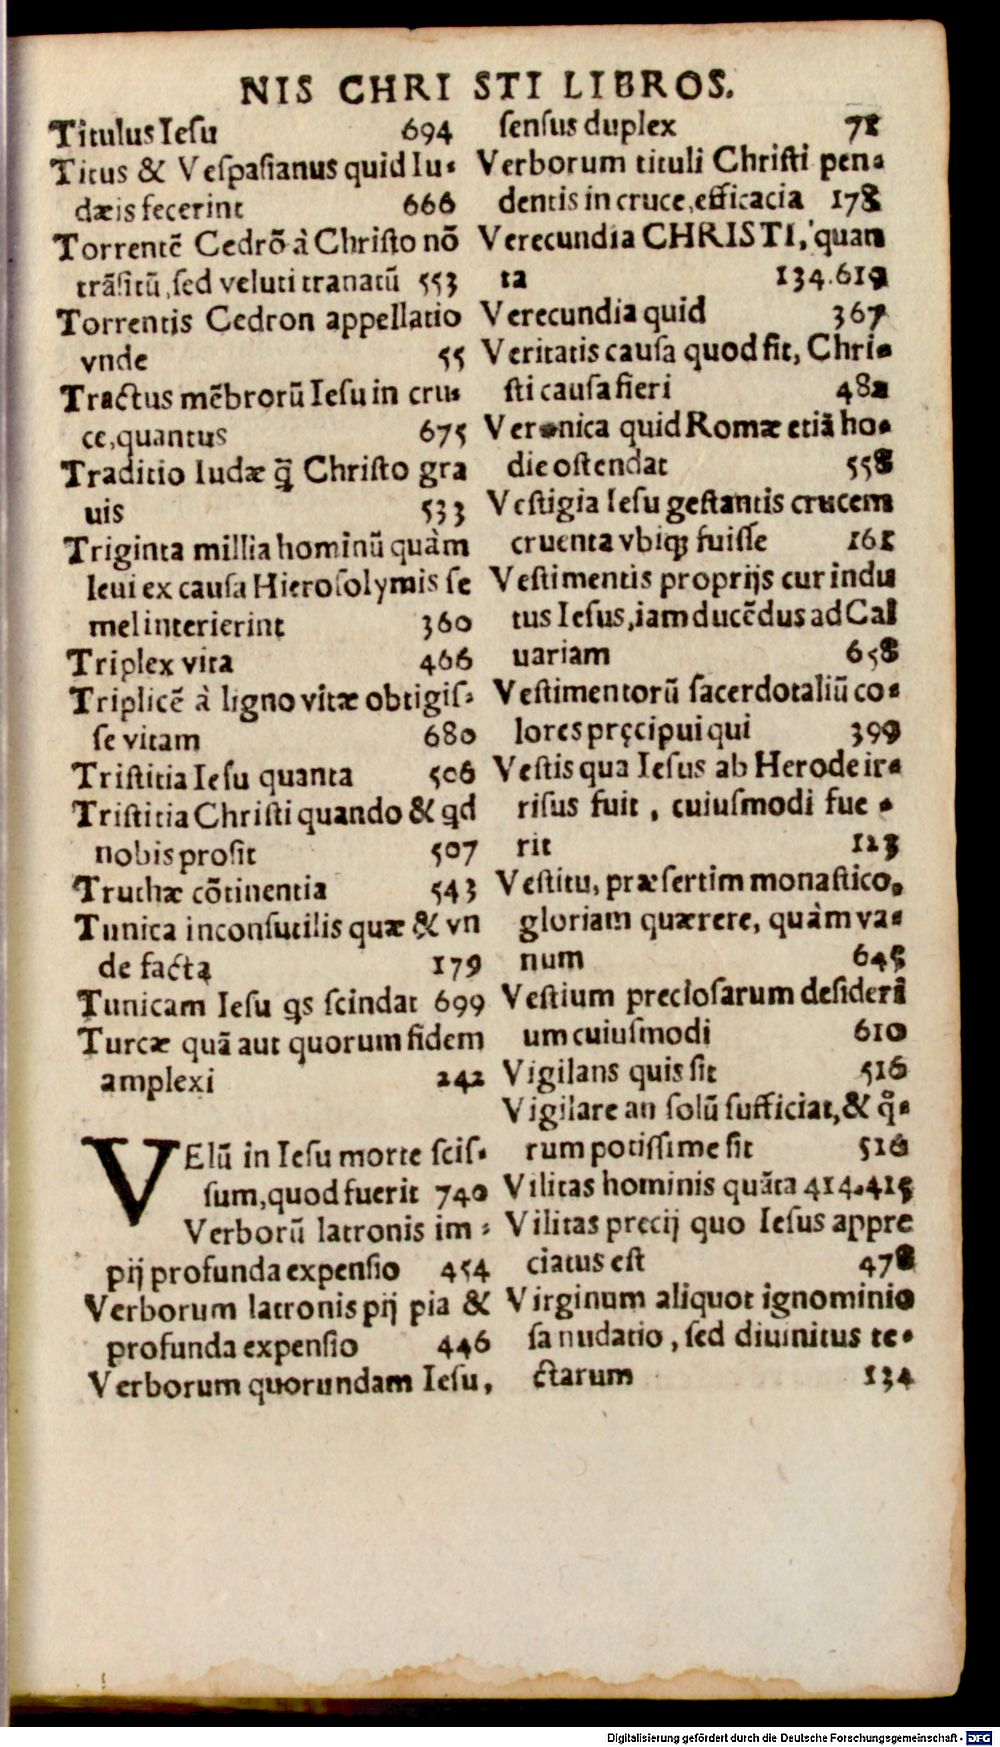 NIS CHRI STI LIBROS.
Titulus Iesu 694
Titus & Vespasianus quid Iu-
dæis fecerint 666
Torrentē Cedrō à Christo nō
trāsitū, sed veluti tranatū 553
Torrentis Cedron appellatio
vnde 55
Tractus mēbrorū Iesu in cru-
ce, quantus 675
Traditio Iudæ q̄ Christo gra
uis 533
Triginta millia hominū quàm
leui ex causa Hierosolymis se
mel interierint 360
Triplex vita 466
Triplicē à ligno vitæ obtigis-
se vitam 680
Tristitia Iesu quanta 506
Tristitia Christi quando & qd
nobis prosit 507
Truthæ cōtinentia 543
Tunica inconsutilis quæ & vn
de facta 179
Tunicam Iesu qs scindat 699
Turcæ quā aut quorum fidem
amplexi 242
VElū in Iesu morte scis-
sum, quod fuerit 740
Verborū latronis im-
pij profunda expensio 454
Verborum latronis pij pia &
profunda expensio 446
Verborum quorundam Iesu,
sensus duplex 78
Verborum tituli Christi pen-
dentis in cruce, efficacia 178
Verecundia CHRISTI, quan
ta 134.619
Verecundia quid 367
Veritatis causa quod fit, Chri-
sti causa fieri 482
Veronica quid Romæ etiā ho-
die ostendat 558
Vestigia Iesu gestantis crucem
cruenta vbiq; fuisse 161
Vestimentis proprijs cur indu
tus Iesus, iam ducēdus ad Cal
uariam 658
Vestimentorū sacerdotaliū co-
lores pręcipui qui 399
Vestis qua Iesus ab Herode ir-
risus fuit, cuiusmodi fue-
rit 123
Vestitu, præsertim monastico,
gloriam quærere, quàm va-
num 645
Vestium preciosarum desideri
um cuiusmodi 610
Vigilans quis sit 516
Vigilare an solū sufficiat, & q°-
rum potissime sit 516
Vilitas hominis quāta 414.415
Vilitas precij quo Iesus appre
ciatus est 478
Virginum aliquot ignominio
sa nudatio, sed diuinitus te-
ctarum 134
Digitalisierung gefördert durch die Deutsche Forschungsgemeinschaft - DFG